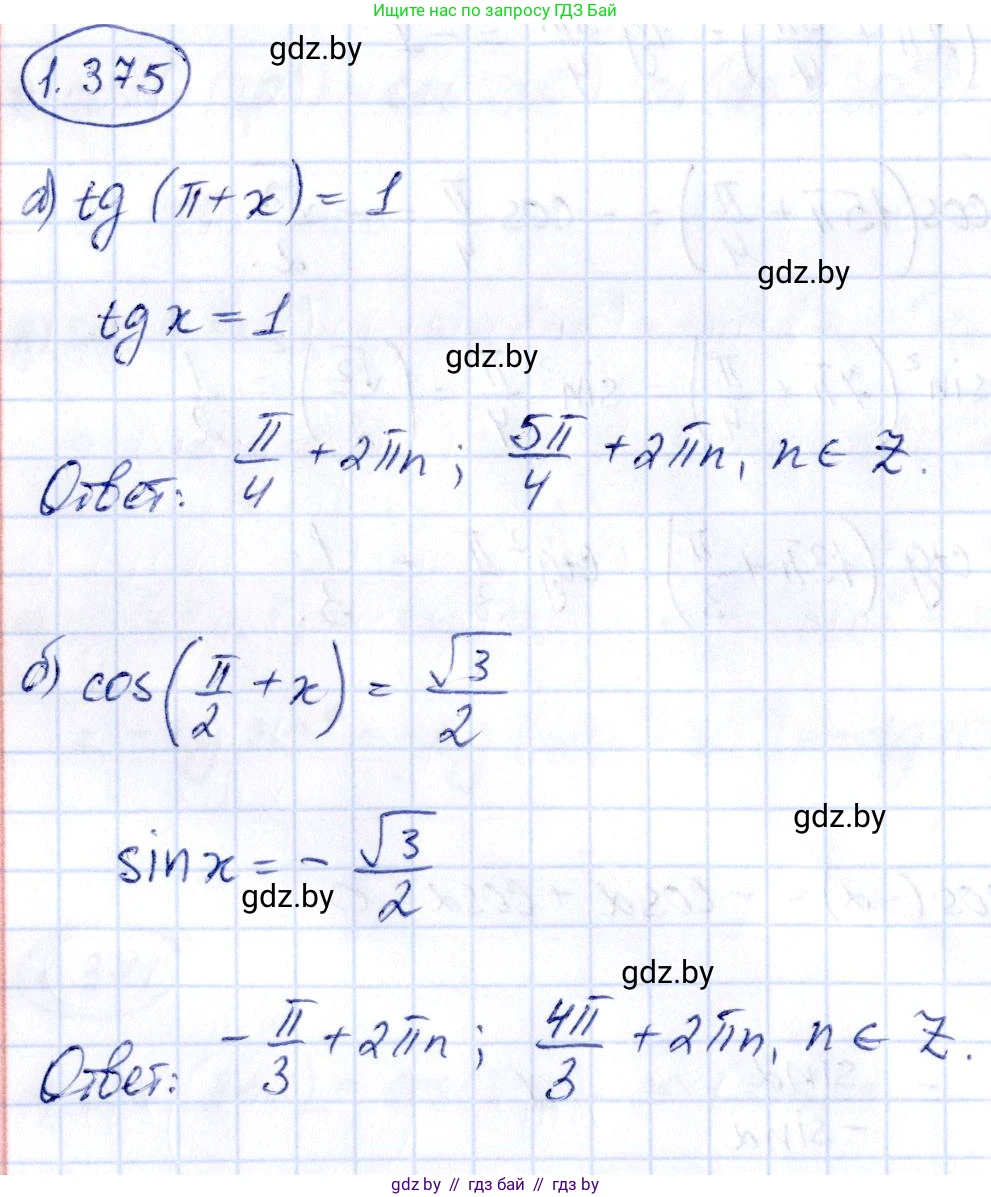 Ищите нас по запросу ГДЗ Бай
1.375
gdz.by
а) tg (π + x) = 1
gdz.by
tg x = 1
gdz.by
Ответ: π/4 + 2πn ; 5π/4 + 2πn, n ∈ Z.
б) cos(π/2 + x) = √3/2
gdz.by
sin x = - √3/2
gdz.by
gdz.by
Ответ: - π/3 + 2πn ; 4π/3 + 2πn, n ∈ Z.
gdz.by // гдз бай // gdz.by